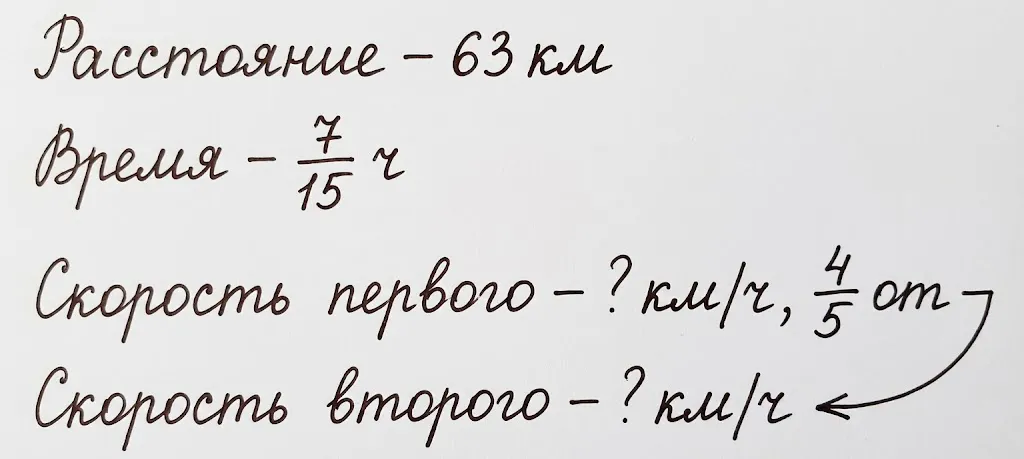 Расстояние – 63 км
Время – 7/15 ч
Скорость первого – ? км/ч, 4/5 от
Скорость второго – ? км/ч